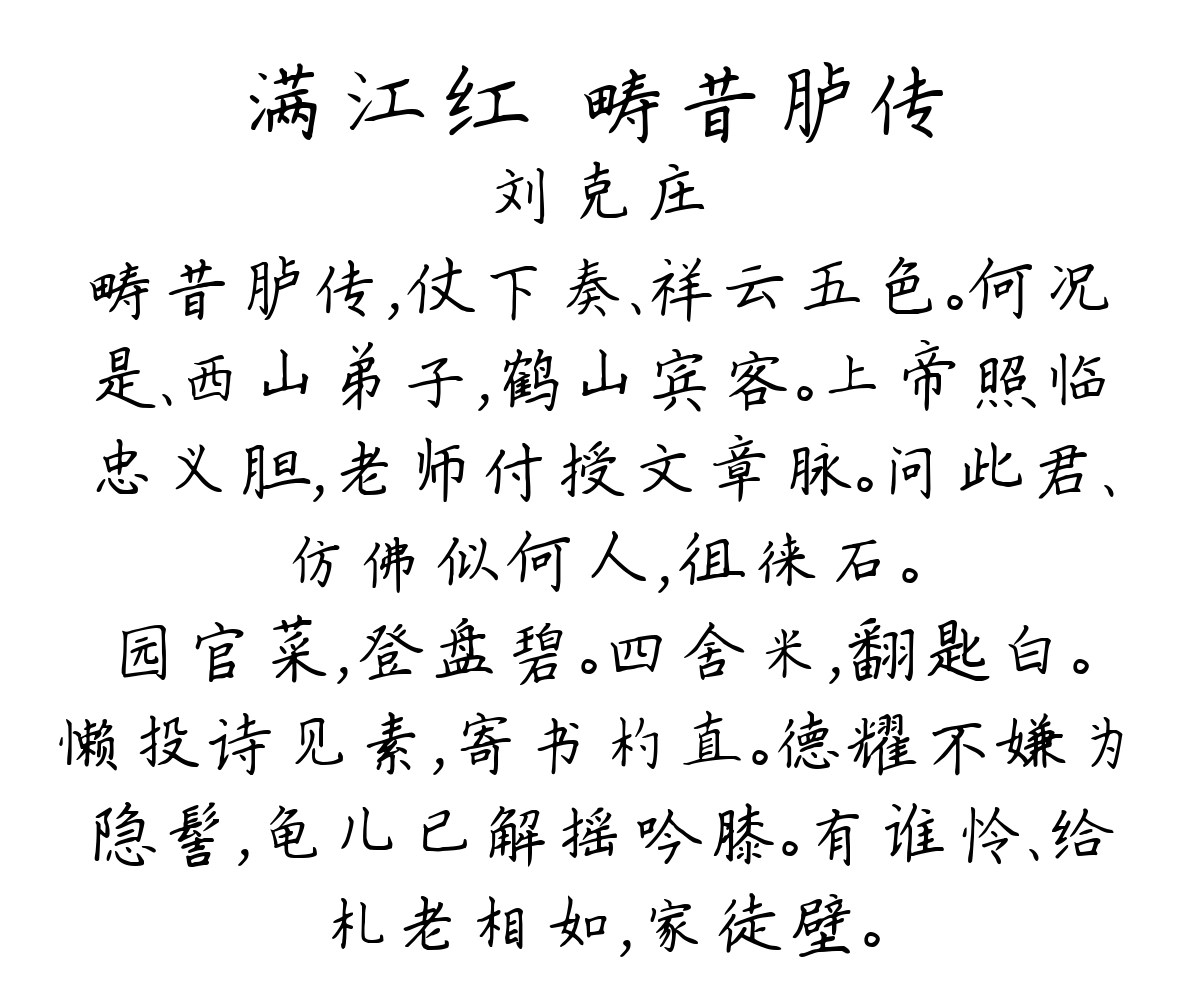 满江红 畴昔胪传
刘克庄
畴昔胪传,仗下奏、祥云五色。何况
是、西山弟子,鹤山宾客。上帝照临
忠义胆,老师付授文章脉。问此君、
仿佛似何人,徂徕石。
园官菜,登盘碧。四舍米,翻匙白。
懒投诗见素,寄书杓直。德耀不嫌为
隐髻,龟儿已解摇吟膝。有谁怜、给
札老相如,家徒壁。